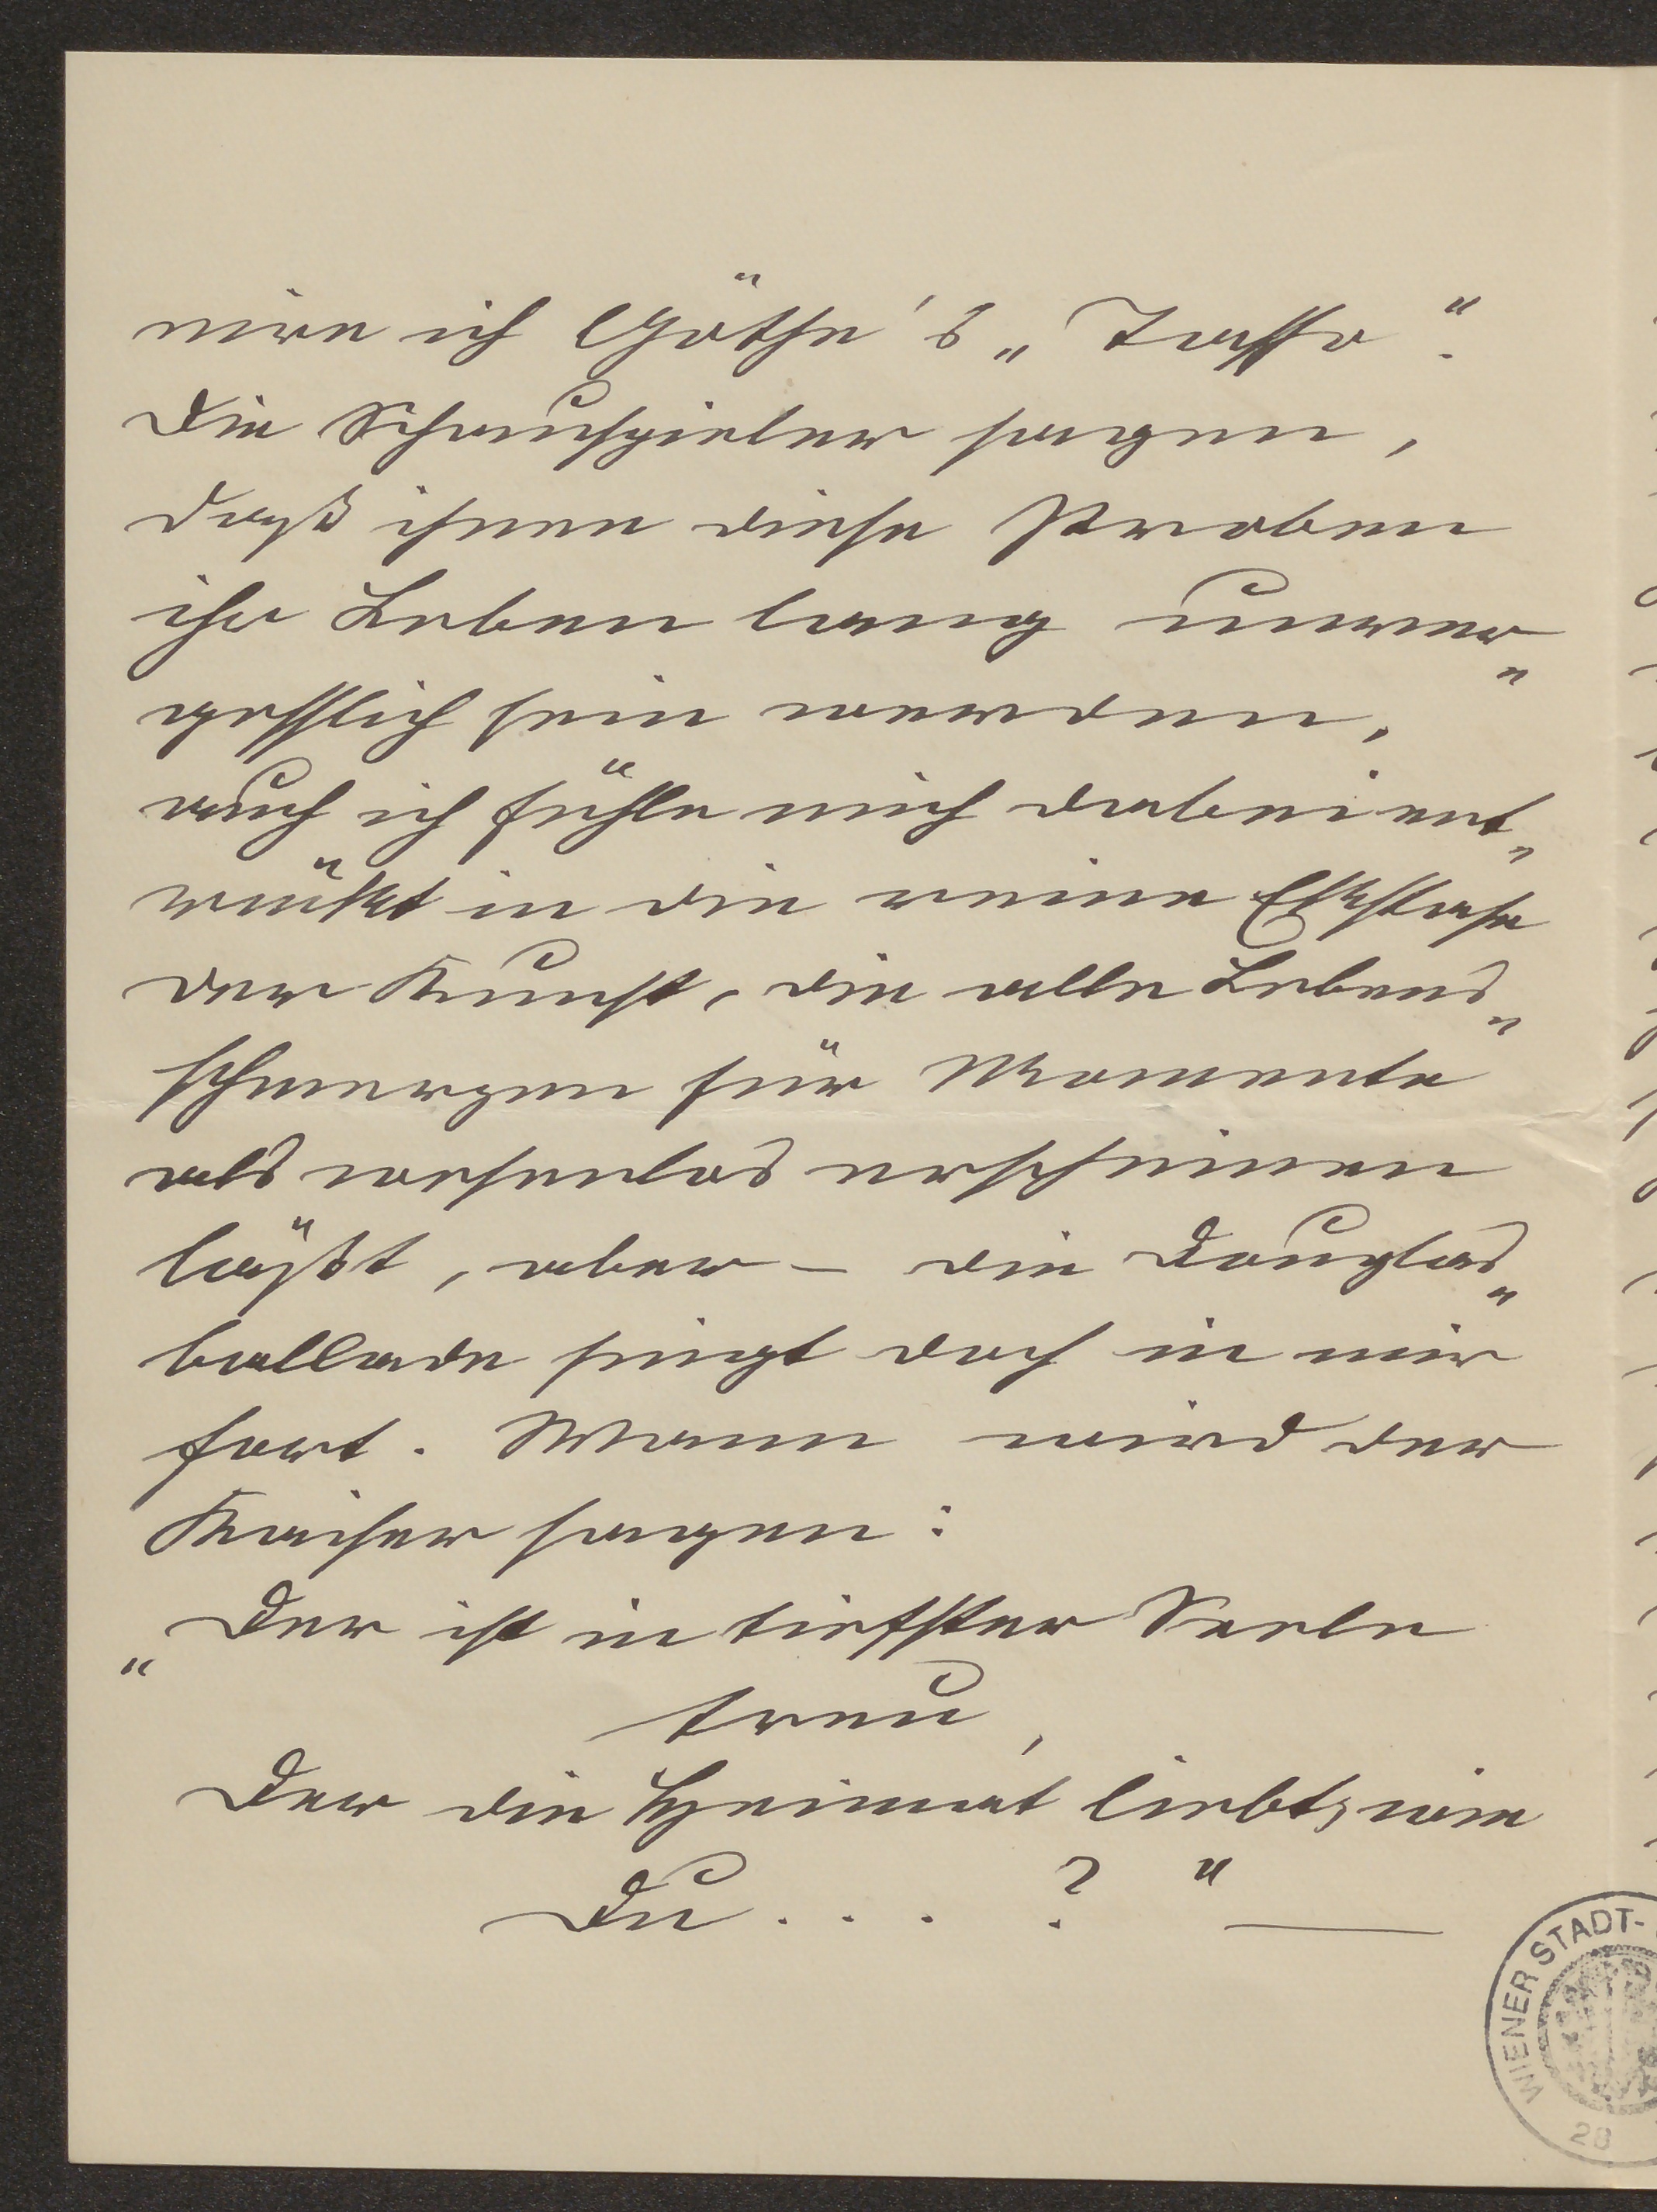 nire ich Göthe's „Tasso".
Die Schauspieler sagen,
daß ihnen diese Proben
ihr Leben lang unver„
gesslich sein werden,
auch ich fühle mich dabei ent„
rückt in die reine Ekstase
der Kunst, die alle Lebens„
schmerzen für Momente
als wesenlos erscheinen
läßt, aber – die Douglas„
ballade singt doch in mir
fort. Wann wird der
Kaiser sagen:
„Der ist in tiefster Seele
treu,
Der die Heimat liebt, wie
Du . . . ? " —
WIENER STADT-
28